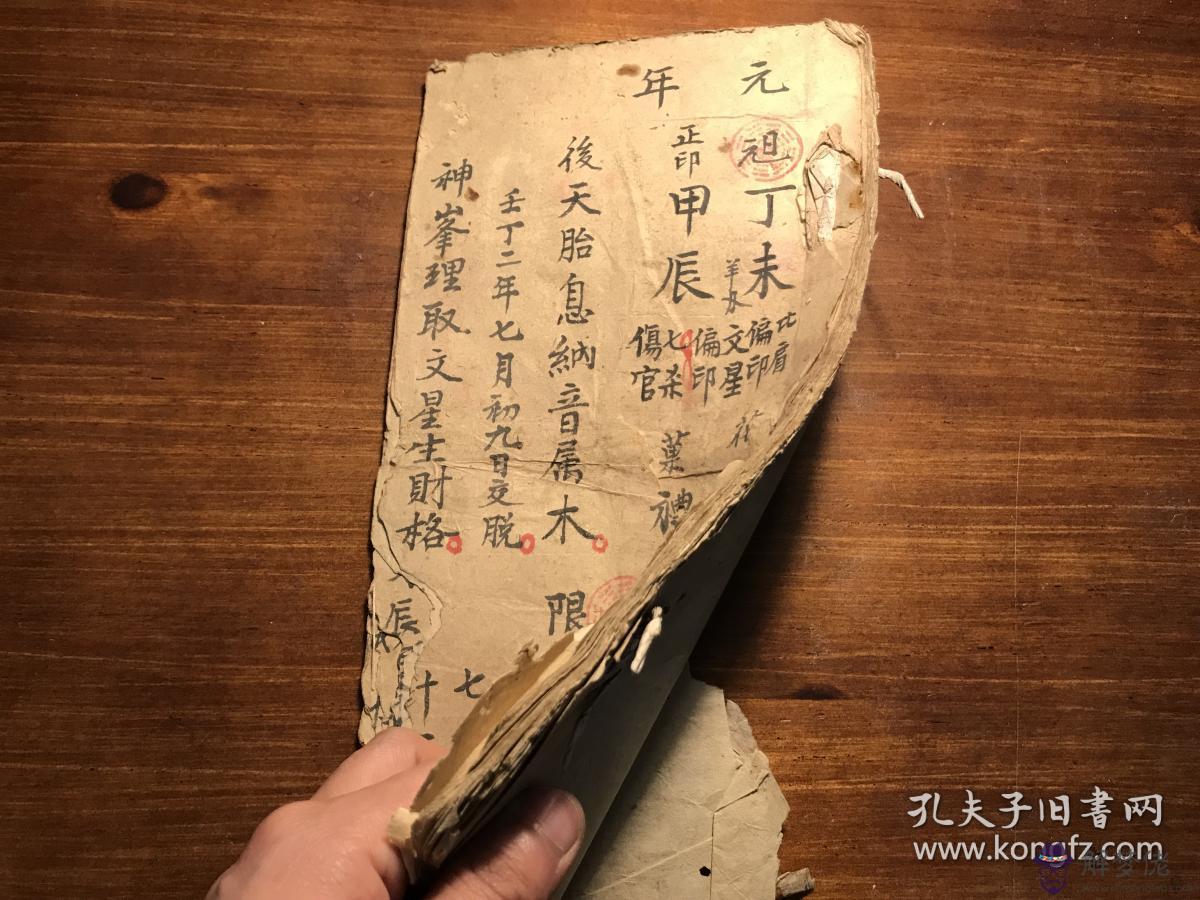 元
年
祖丁未
比肩
偏印
羊刃
文星
偏印
正印甲辰
七杀
傷官
葉神
後天胎息納音属木
限
壬丁二年七月初九日交脱
七
神峯理取文星生財格
辰
十
孔夫子旧書网
www.kongfz.com
解梦佬